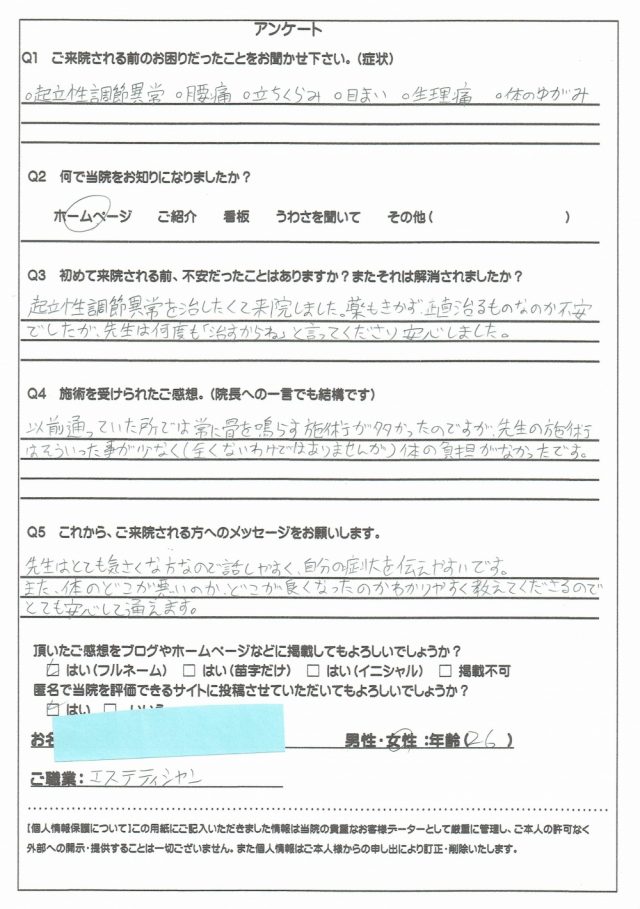 アンケート
Q1 ご来院される前のお困りだったことをお聞かせ下さい。(症状)
○起立性調節異常 ○腰痛 ○立ちくらみ ○目まい ○生理痛 ○体のゆがみ
Q2 何で当院をお知りになりましたか?
ホームページ ご紹介 看板 うわさを聞いて その他( )
Q3 初めて来院される前、不安だったことはありますか?またそれは解消されましたか?
起立性調節異常を治したくて来院しました。薬もきかず、正直治るものなのか不安
でしたが、先生は何度も「治すからね」と言ってくださり安心しました。
Q4 施術を受けられたご感想。(院長への一言でも結構です)
以前通っていた所では常に骨を鳴らす施術が多かったのですが、先生の施術
はそういった事が少なく(全くないわけではありませんが)体の負担がなかったです。
Q5 これから、ご来院される方へのメッセージをお願いします。
先生はとても気さくな方なので話しやすく、自分の症状を伝えやすいです。
また、体のどこが悪いのか、どこが良くなったのかわかりやすく教えてくださるので
とても安心して通えます。
頂いたご感想をブログやホームページなどに掲載してもよろしいでしょうか?
☑ はい(フルネーム) □ はい(苗字だけ) □ はい(イニシャル) □ 掲載不可
匿名で当院を評価できるサイトに投稿させていただいてもよろしいでしょうか?
☑ はい □ いいえ
お名 男性・女性:年齢(26)
ご職業:エステティシャン
【個人情報保護について】この用紙にご記入いただきました情報は当院の貴重なお客様データーとして厳重に管理し、ご本人の許可なく
外部への開示・提供することは一切ございません。また個人情報はご本人様からの申し出により訂正・削除いたします。